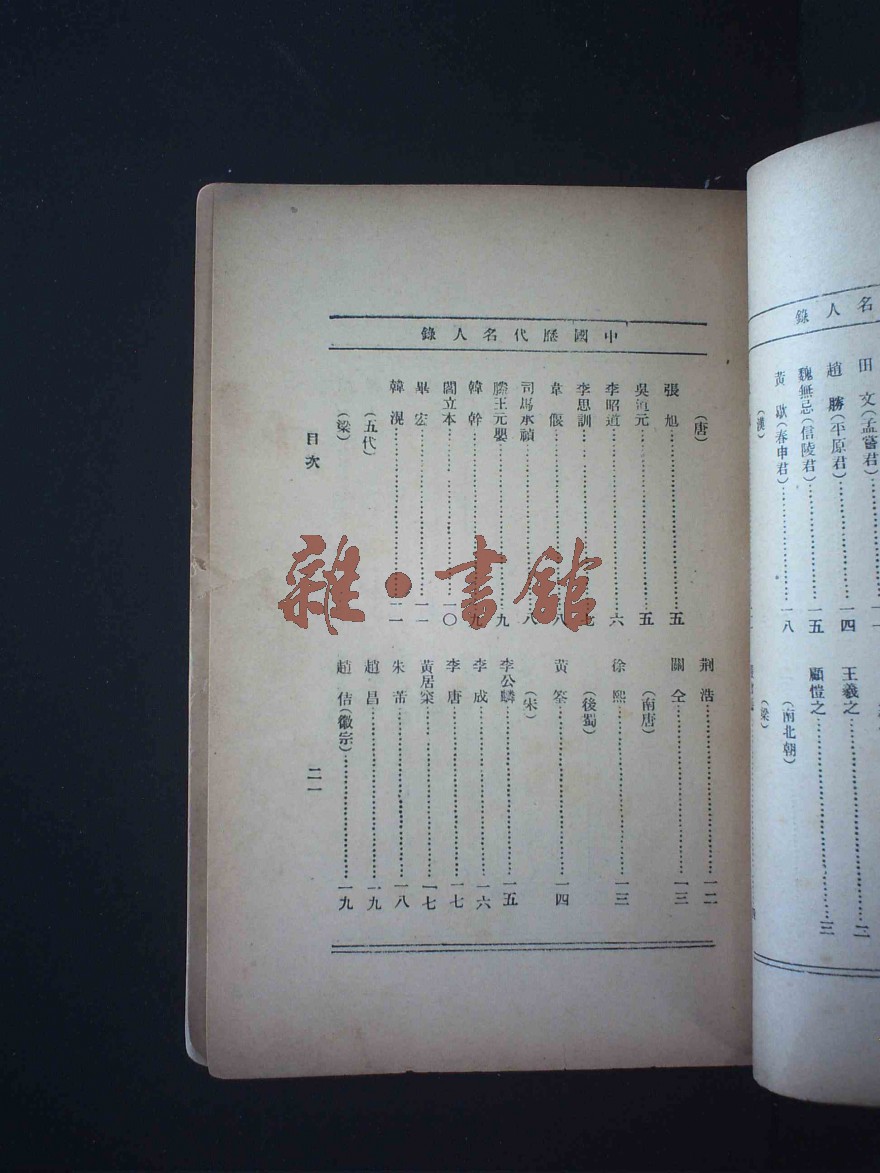 名人錄
田文(孟嘗君)
趙勝(平原君)……一四
魏無忌(信陵君)……一五
黃歇(春申君)……一八
(漢)
王羲之……二
顧愷之……三
(南北朝)
(梁)
中國歷代名人錄
(唐)
張旭……五
吳道元……五
李昭道……六
李思訓……七
韋偃……八
司馬承禎……八
滕王元嬰……九
韓幹……九
閻立本……一〇
畢宏……一一
韓滉……一一
(五代)
(梁)
荆浩……一二
關仝……一三
(南唐)
徐熙……一三
(後蜀)
黃筌……一四
(宋)
李公麟……一五
李成……一六
李唐……一七
黃居寀……一七
朱芾……一八
趙昌……一九
趙佶(徽宗)……一九
目次
二一
雜·書館